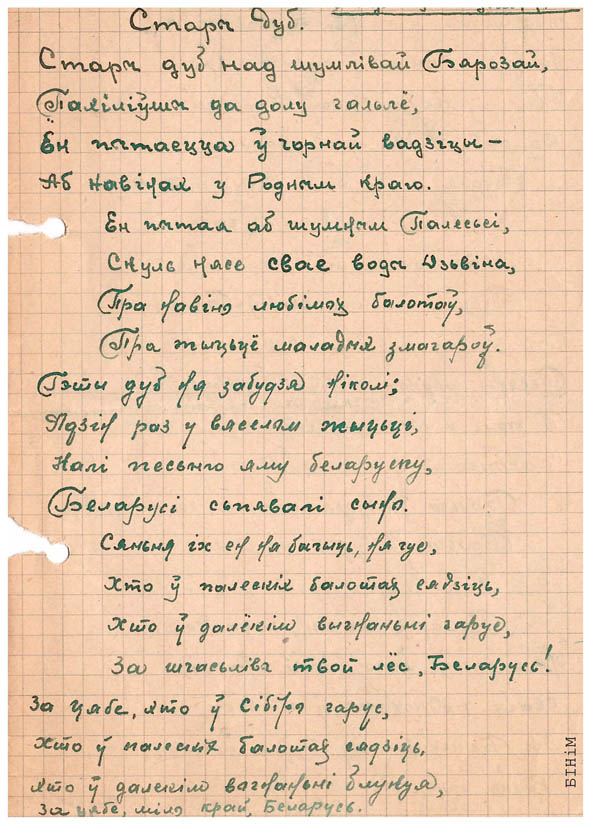 Стары дуб.
Стары дуб над шумлівай Барозай,
Пахіліўшы да долу гальлё,
Ён пытаецца ў чорнай вадзіцы —
Аб навінах у Родным краю.
Ен пытая аб шумным Палесьсі,
Скуль нясе свае воды Дзьвіна,
Пра навіны любімых балотаў,
Пра жыцьцё маладых змагароў.
Гэты дуб ня забудзя ніколі;
Адзін раз у вяселым жыцьці,
Калі песьню яму беларуску,
Беларусі сьпявалі сыны.
Сяньня іх ен ня бачыць, ня чуе,
Хто ў палескіх балотах сядзіць,
Хто ў далёкім выгнаньні гаруе,
За шчасьлівы твой лёс, Беларусь!
За цябе, хто ў Сібіры гаруе,
Хто ў палескіх балотах сядзіць,
Хто ў далекім выгнаньні блукуя,
За цябе, мілы край, Беларусь.
БІНіМ